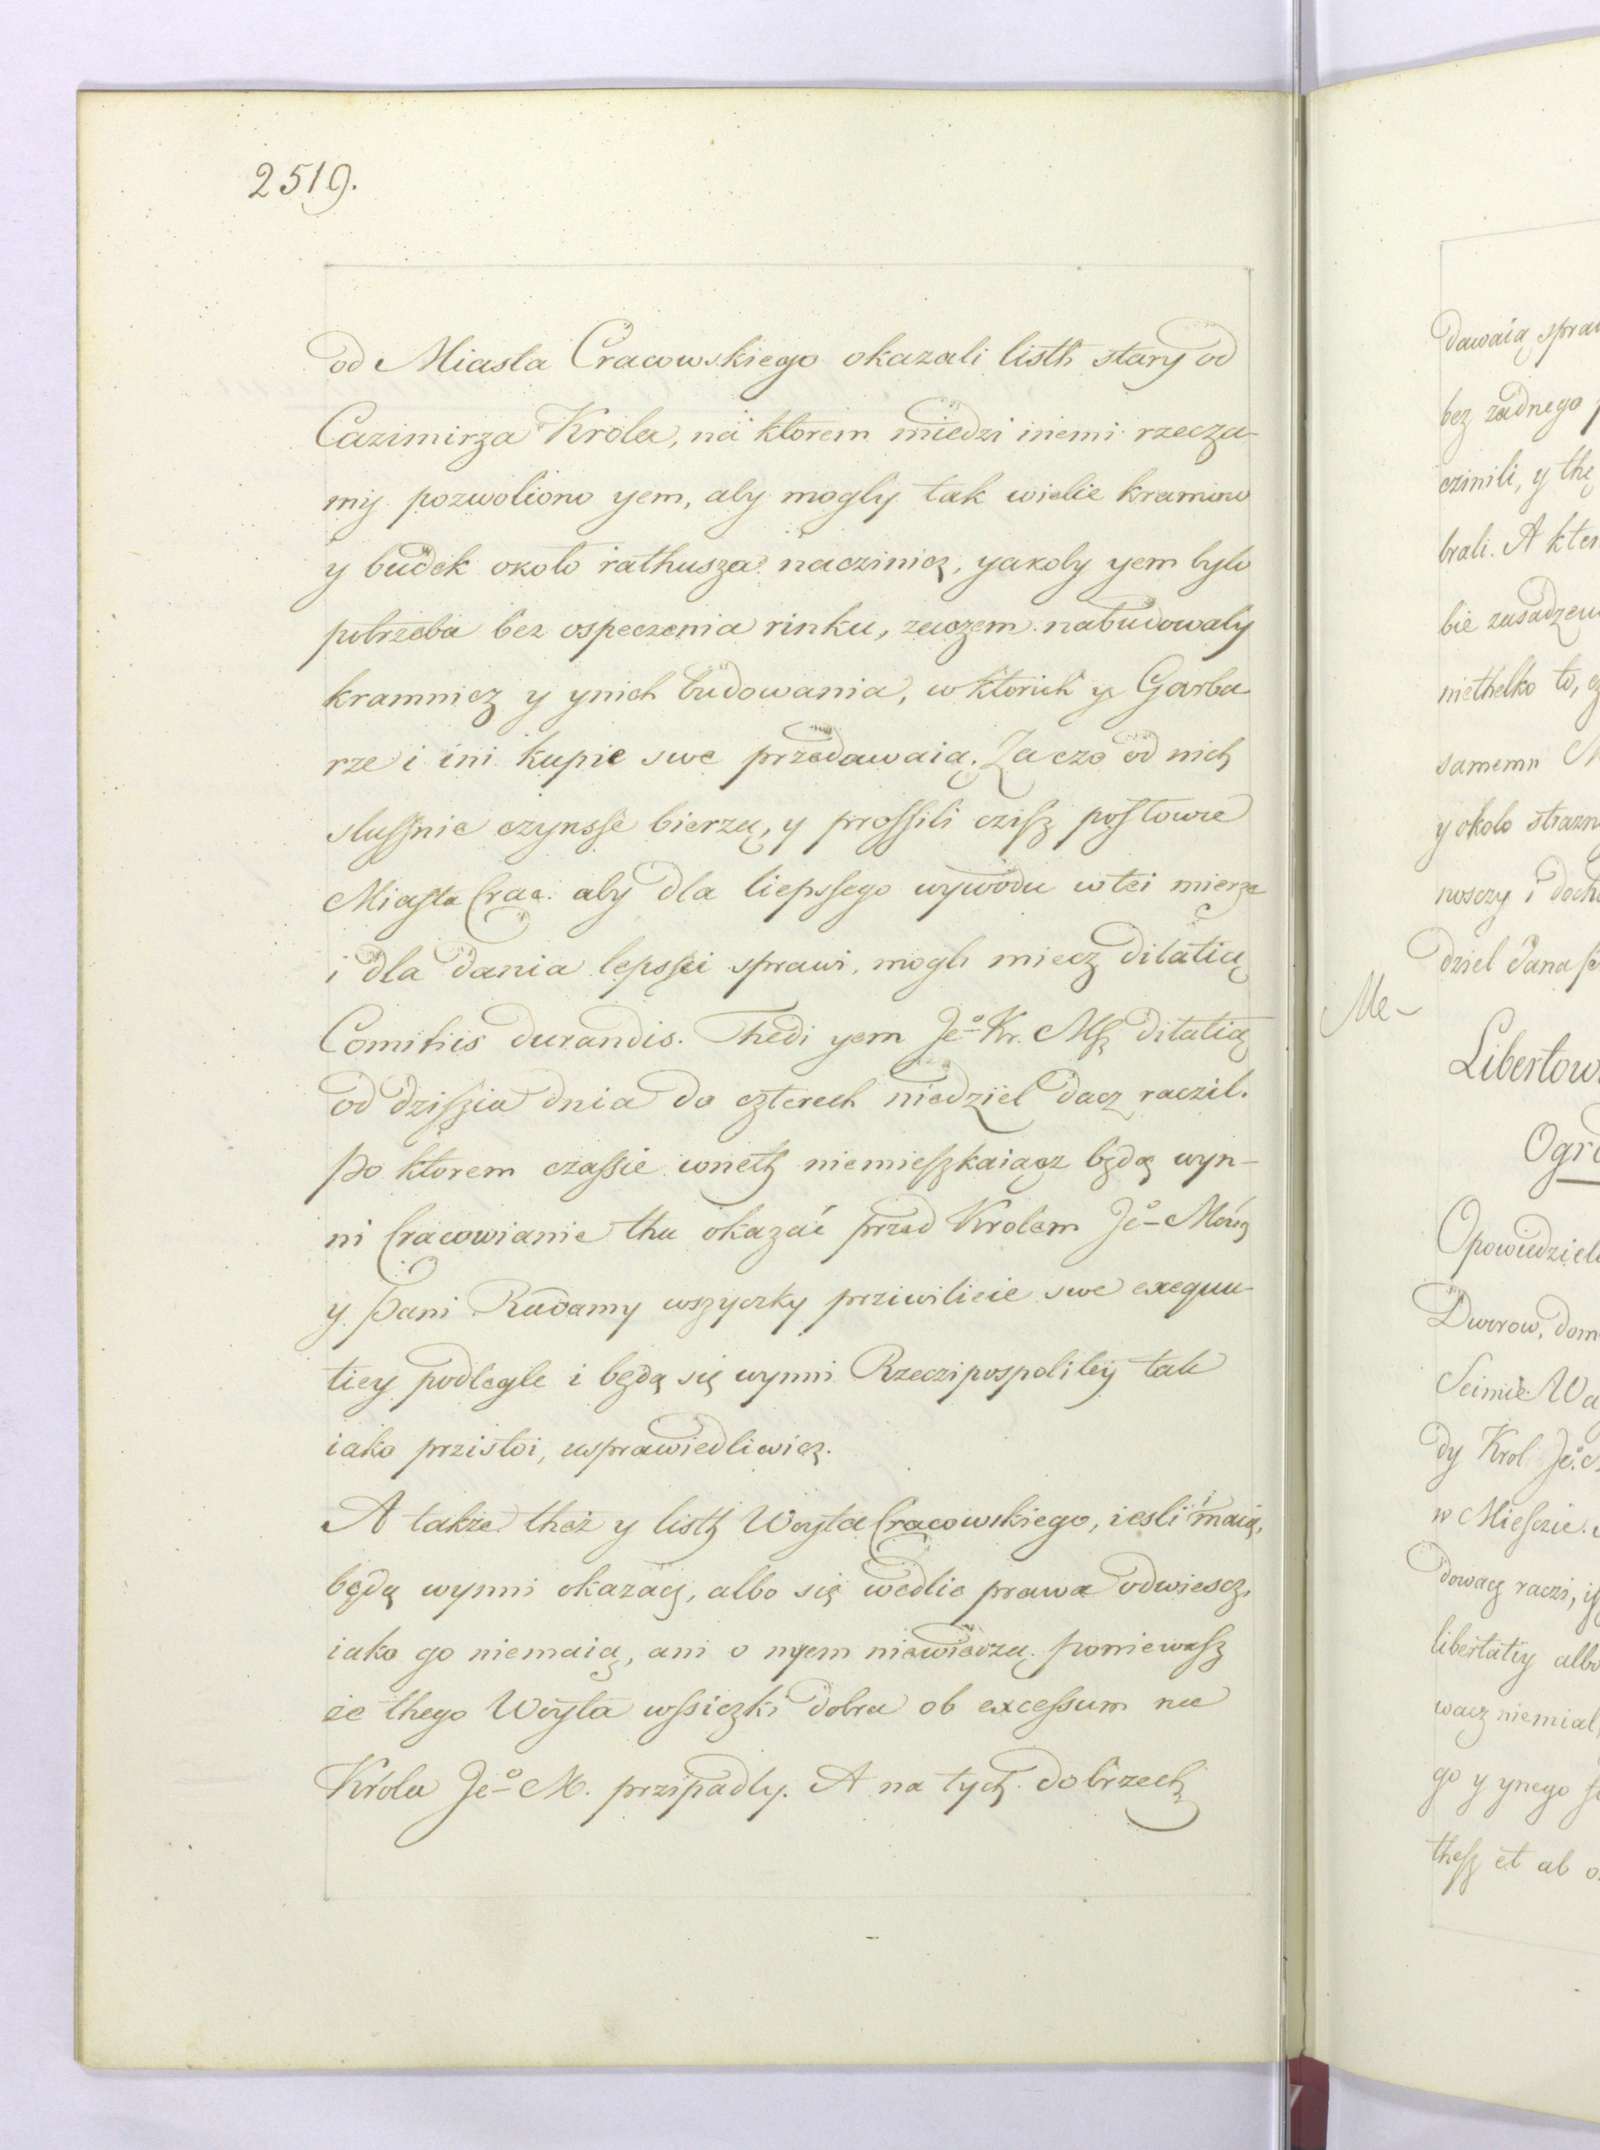 2519.
od Miasta Cracowskiego okazali listh stary od
Cazimirza Krola, na ktorem miedzi inemi rzecza-
mij pozwoliono yem, aby mogly tak wielie kramow
y budek około rathusza naczinicz, yakoby yem bylo
potrzeba bez ospeczenia rinku, zaczem nabudowaly
kramnicz y ynich budowania, w ktorich y Garba-
rze i ini kupie swe przedawaią. Za czo od nich
slussnie czynsse bierzą, y prossili czisz posłowie
Miasta Crac. aby dla liepssego wywodu w tei mierze
i dla dania lepssei sprawi, mogli miecz dilatią
Comitiis durandis. Thedi yem Jeo Kr. Msz dilatią
od dzisszia dnia do czterech niedziel dacz raczil.
Po ktorem czassie wneth niemieszkaiącz będą wyn-
ni Cracowianie thu okazać przed Krolem Jeo Mcią
y Pani Radamy wszyczky prziwilieie swe exequu-
tiey podlegle i będą się wynni Rzeczipospolitey tak
iako przistoi, usprawiedliwicz.
A także theż y listh Woyta Cracowskiego, iesli maią,
będą wynni okazacz, albo się wedlie prawa odwiescz,
iako go niemaią, ani o nyem niewiedzą poniewasz
ze thego Woyta wssiczki dobra ob excessum na
Króla Jeo M. przipadly. A na tych dobrzech
dawaią
bez żadnego
czinili, y thę
brali. A
bie
niethelko to,
samemu
y okolo
nosczy i
dziel Pana
Me-
Opowiedziel
Dworow, dom
Seimie Wa
dy Krol Jeo
w Miescie
dowacz raczi,
libertatiy albo
wacz niemial
go y ynego
thesz et ab